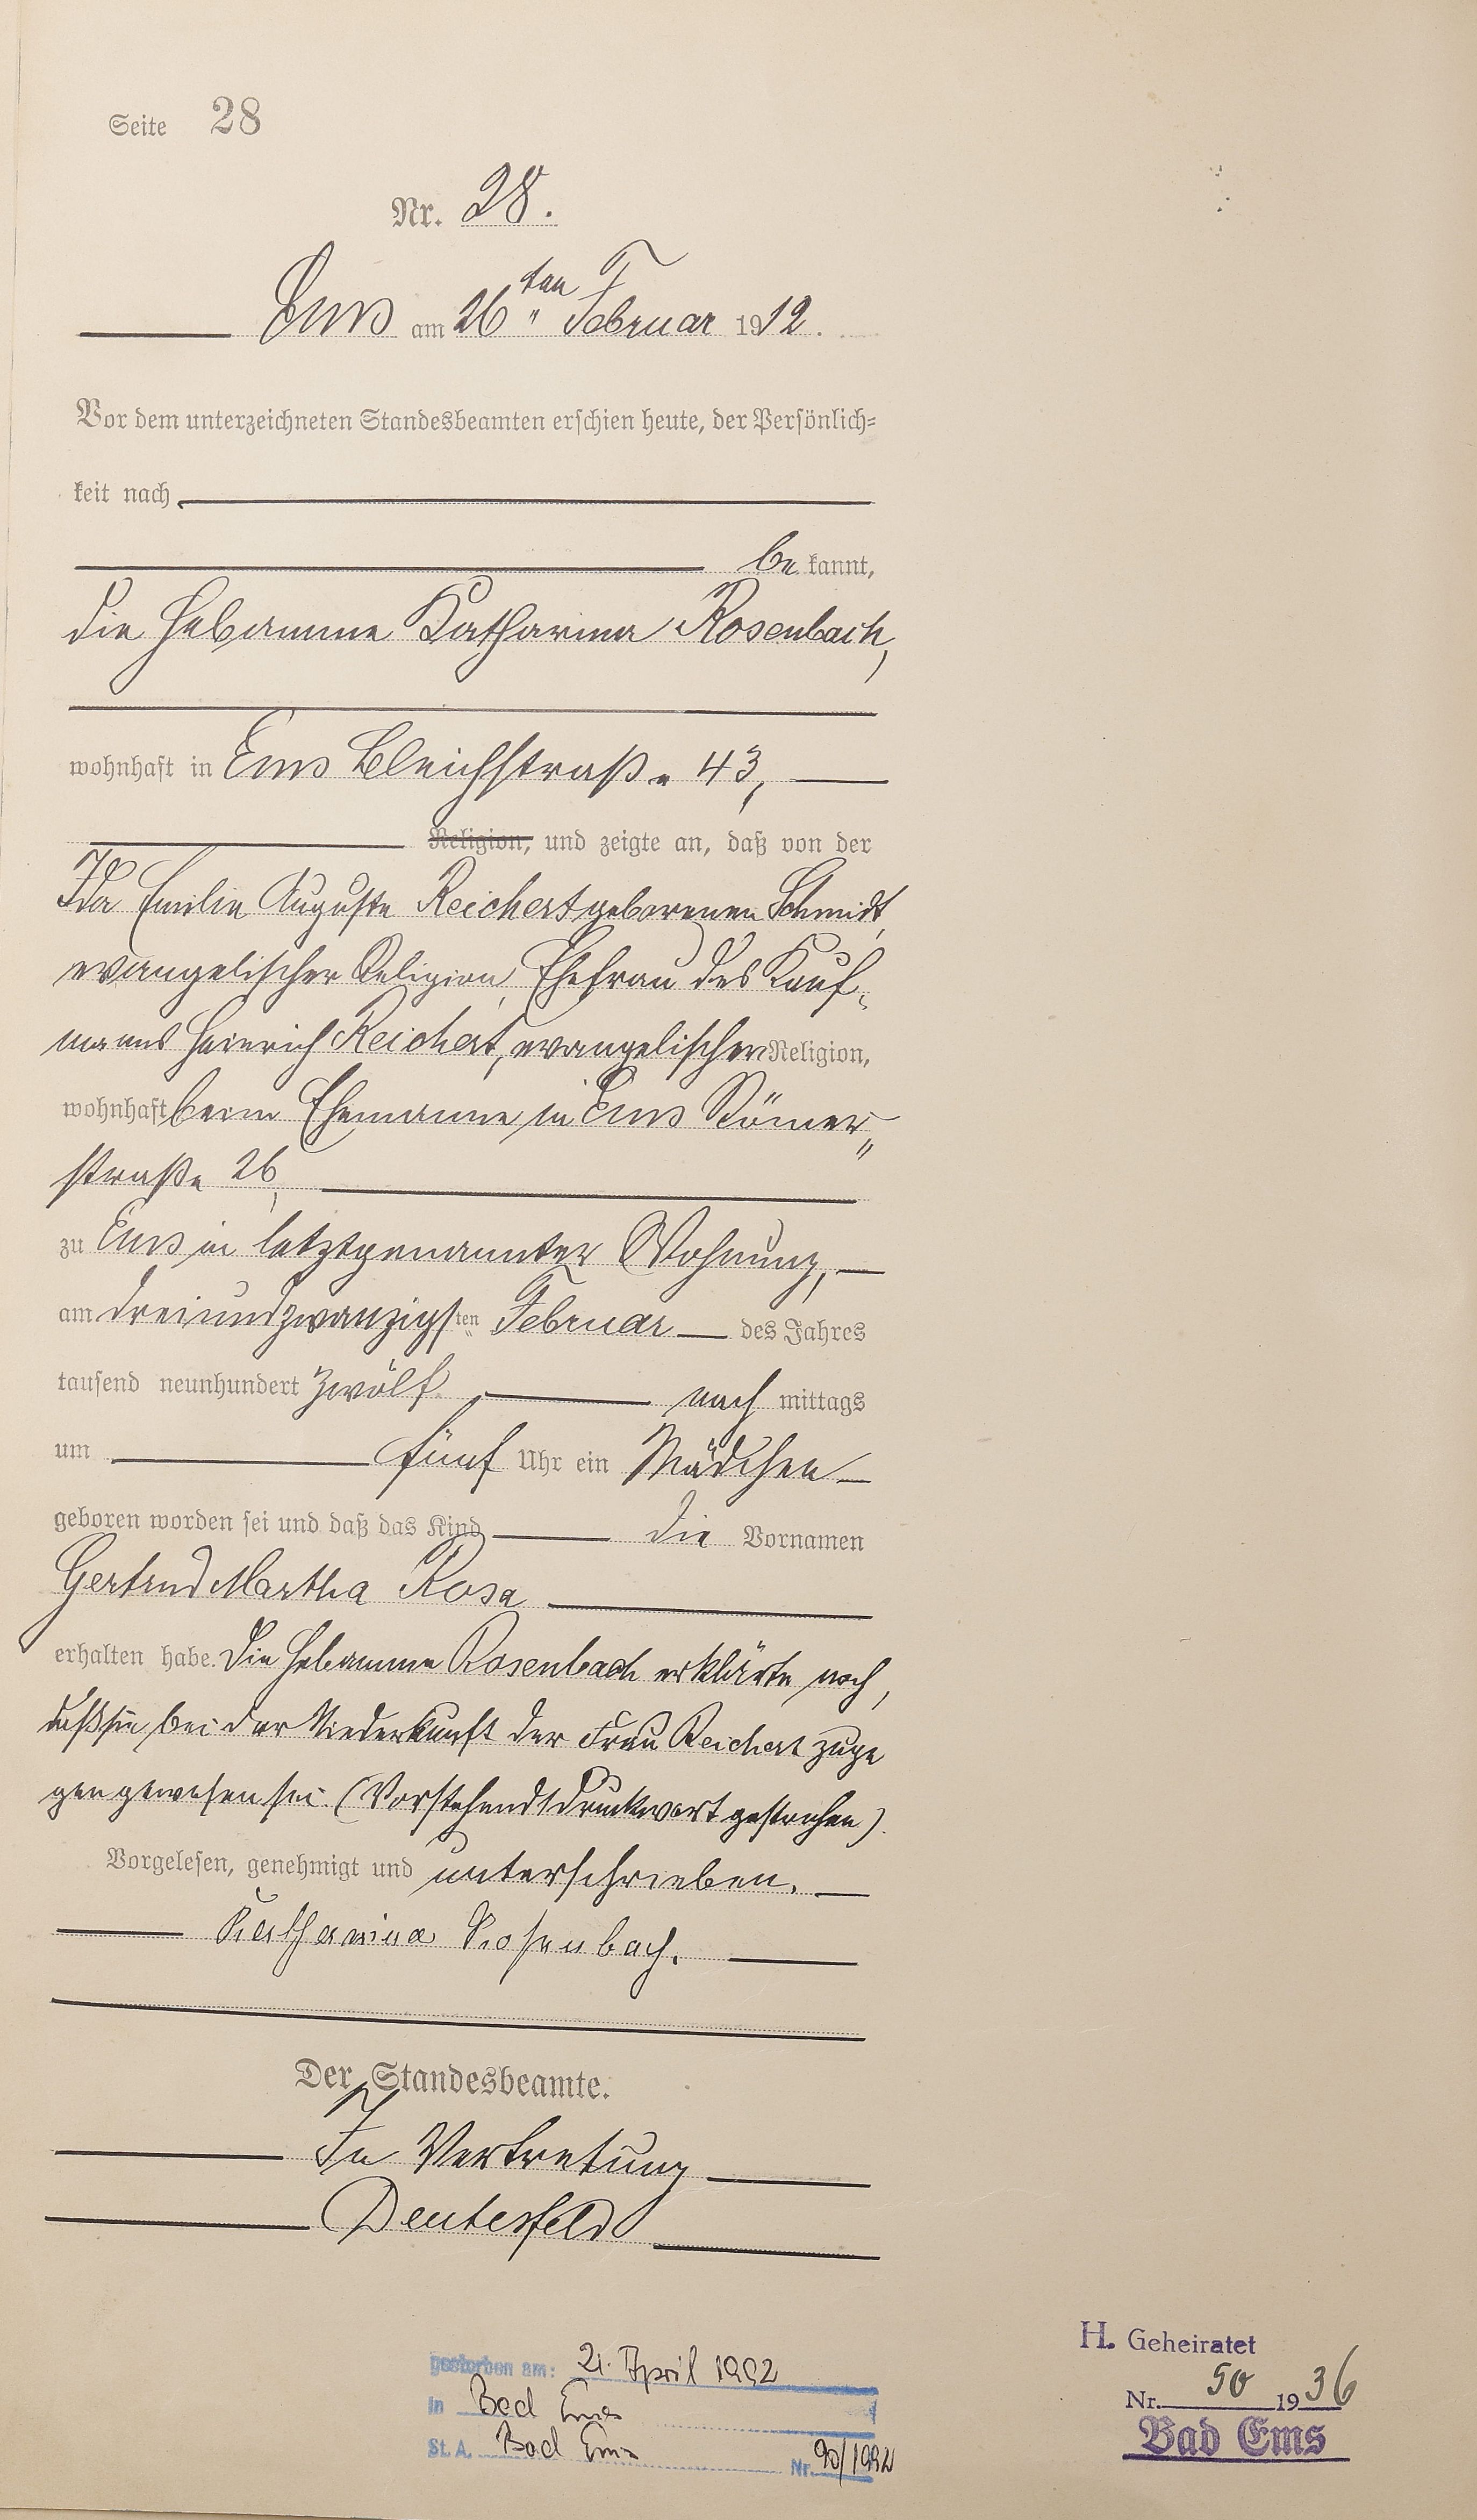 Seite 28
Nr. 28.
Ems am 26ten Februar 1912.
Vor dem unterzeichneten Standesbeamten erschien heute, der Persönlich=
keit nach
be kannt,
die Hebamme Katharina Rosenbach,
wohnhaft in Ems Bleichstraße 43,
Religion, und zeigte an, daß von der
Ida Emilie Auguste Reichert geborenen Schmidt,
evangelischer Religion, Ehefrau des Kauf-
manns Heinrich Reichert, evangelischer Religion,
wohnhaft beim Ehemanne in Ems Römer„
straße 26,
zu Ems in letztgenannter Wohnung,
am dreiundzwanzigsten Februar des Jahres
tausend neunhundert zwölf nach mittags
um fünf Uhr ein Mädchen
geboren worden sei und daß das Kind die Vornamen
Gertrud Martha Rosa
erhalten habe. Die Hebamme Rosenbach erklärte noch,
daß sie bei der Niederkunft der Frau Reichert zuge
gen gewesen sei. (Vorstehend 1 Druckwort gestrichen).
Vorgelesen, genehmigt und unterschrieben.
Katharina Rosenbach.
Der Standesbeamte.
In Vertretung
Deutesfeld
gestorben am: 21. April 1992
in Bad Ems
St. A. Bad Ems Nr. 90/1992
H. Geheiratet
Nr. 50 1936
Bad Ems